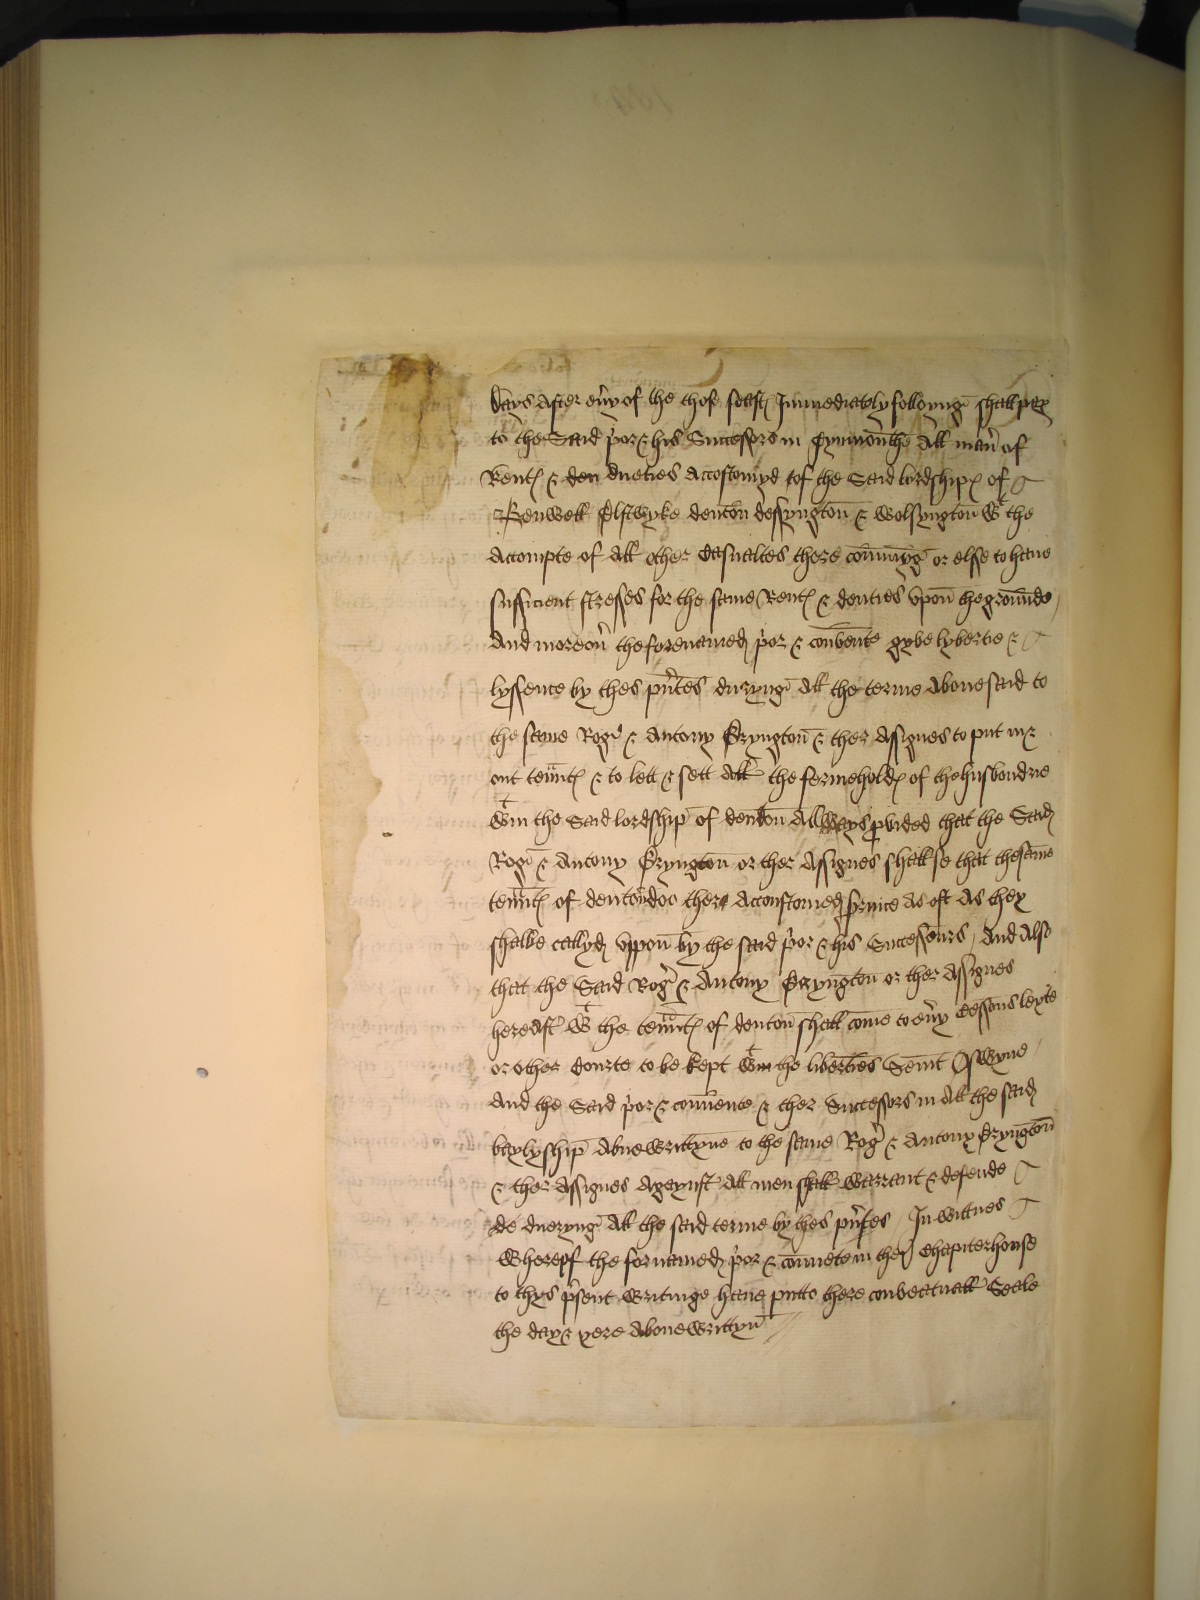 days after eu'y of the thos feast Immediately folloyng shall pay
to the Said p'or & his Successors in Tynmouthe All man' of
Rent & den dueties Accostomyd tof the Said lordship of
Benwell Elstwyke denton dessyngton & wolsyngton wt the
Accompte of All other Casualtes there comynyg or else to haue
sufficient stresses for the same Rent & deuties vpon the grounde
And moreou' the forenamed p'or & convente gyve lybertie &
lyssence by thes p'ntes duryng All the terme Aboue said to
the same Rog' & Antony Eryngton & ther Assignes to put in &
out ten'nt & to lett & sett All the fermehold of the husbondrie
wtin the Said lordship of denton Allways p'vided that the Said
Rog' & Antony Eryngton or ther Assignes shall se that the same
ten'nt of denton doo there Accustomed seruice As oft As they
shalbe callyd vppon by the said p'or & his Successours And Also
that the Said Rog' & Antony Eryngton or ther Assignes
hereaft' wt the ten'nt of denton shall come to eu'y leyte
or other Courte to be kept wtin the liberties Seint Oswyne
And the Said p'or & convence & ther Successors in All the said
baylyship Abuewrittyne to the same Rog' & Antony Eryngton
& ther Assignes Ageynst All men shall Warrant & defende
de dueryng All the said terme by thes p'ntes In wittnes
Whereof the fornamed p'or & in ther Chapiterhouse
to thys p'sent writinge haue putto there conventuall Seale
the day & yere Abouewrittyn